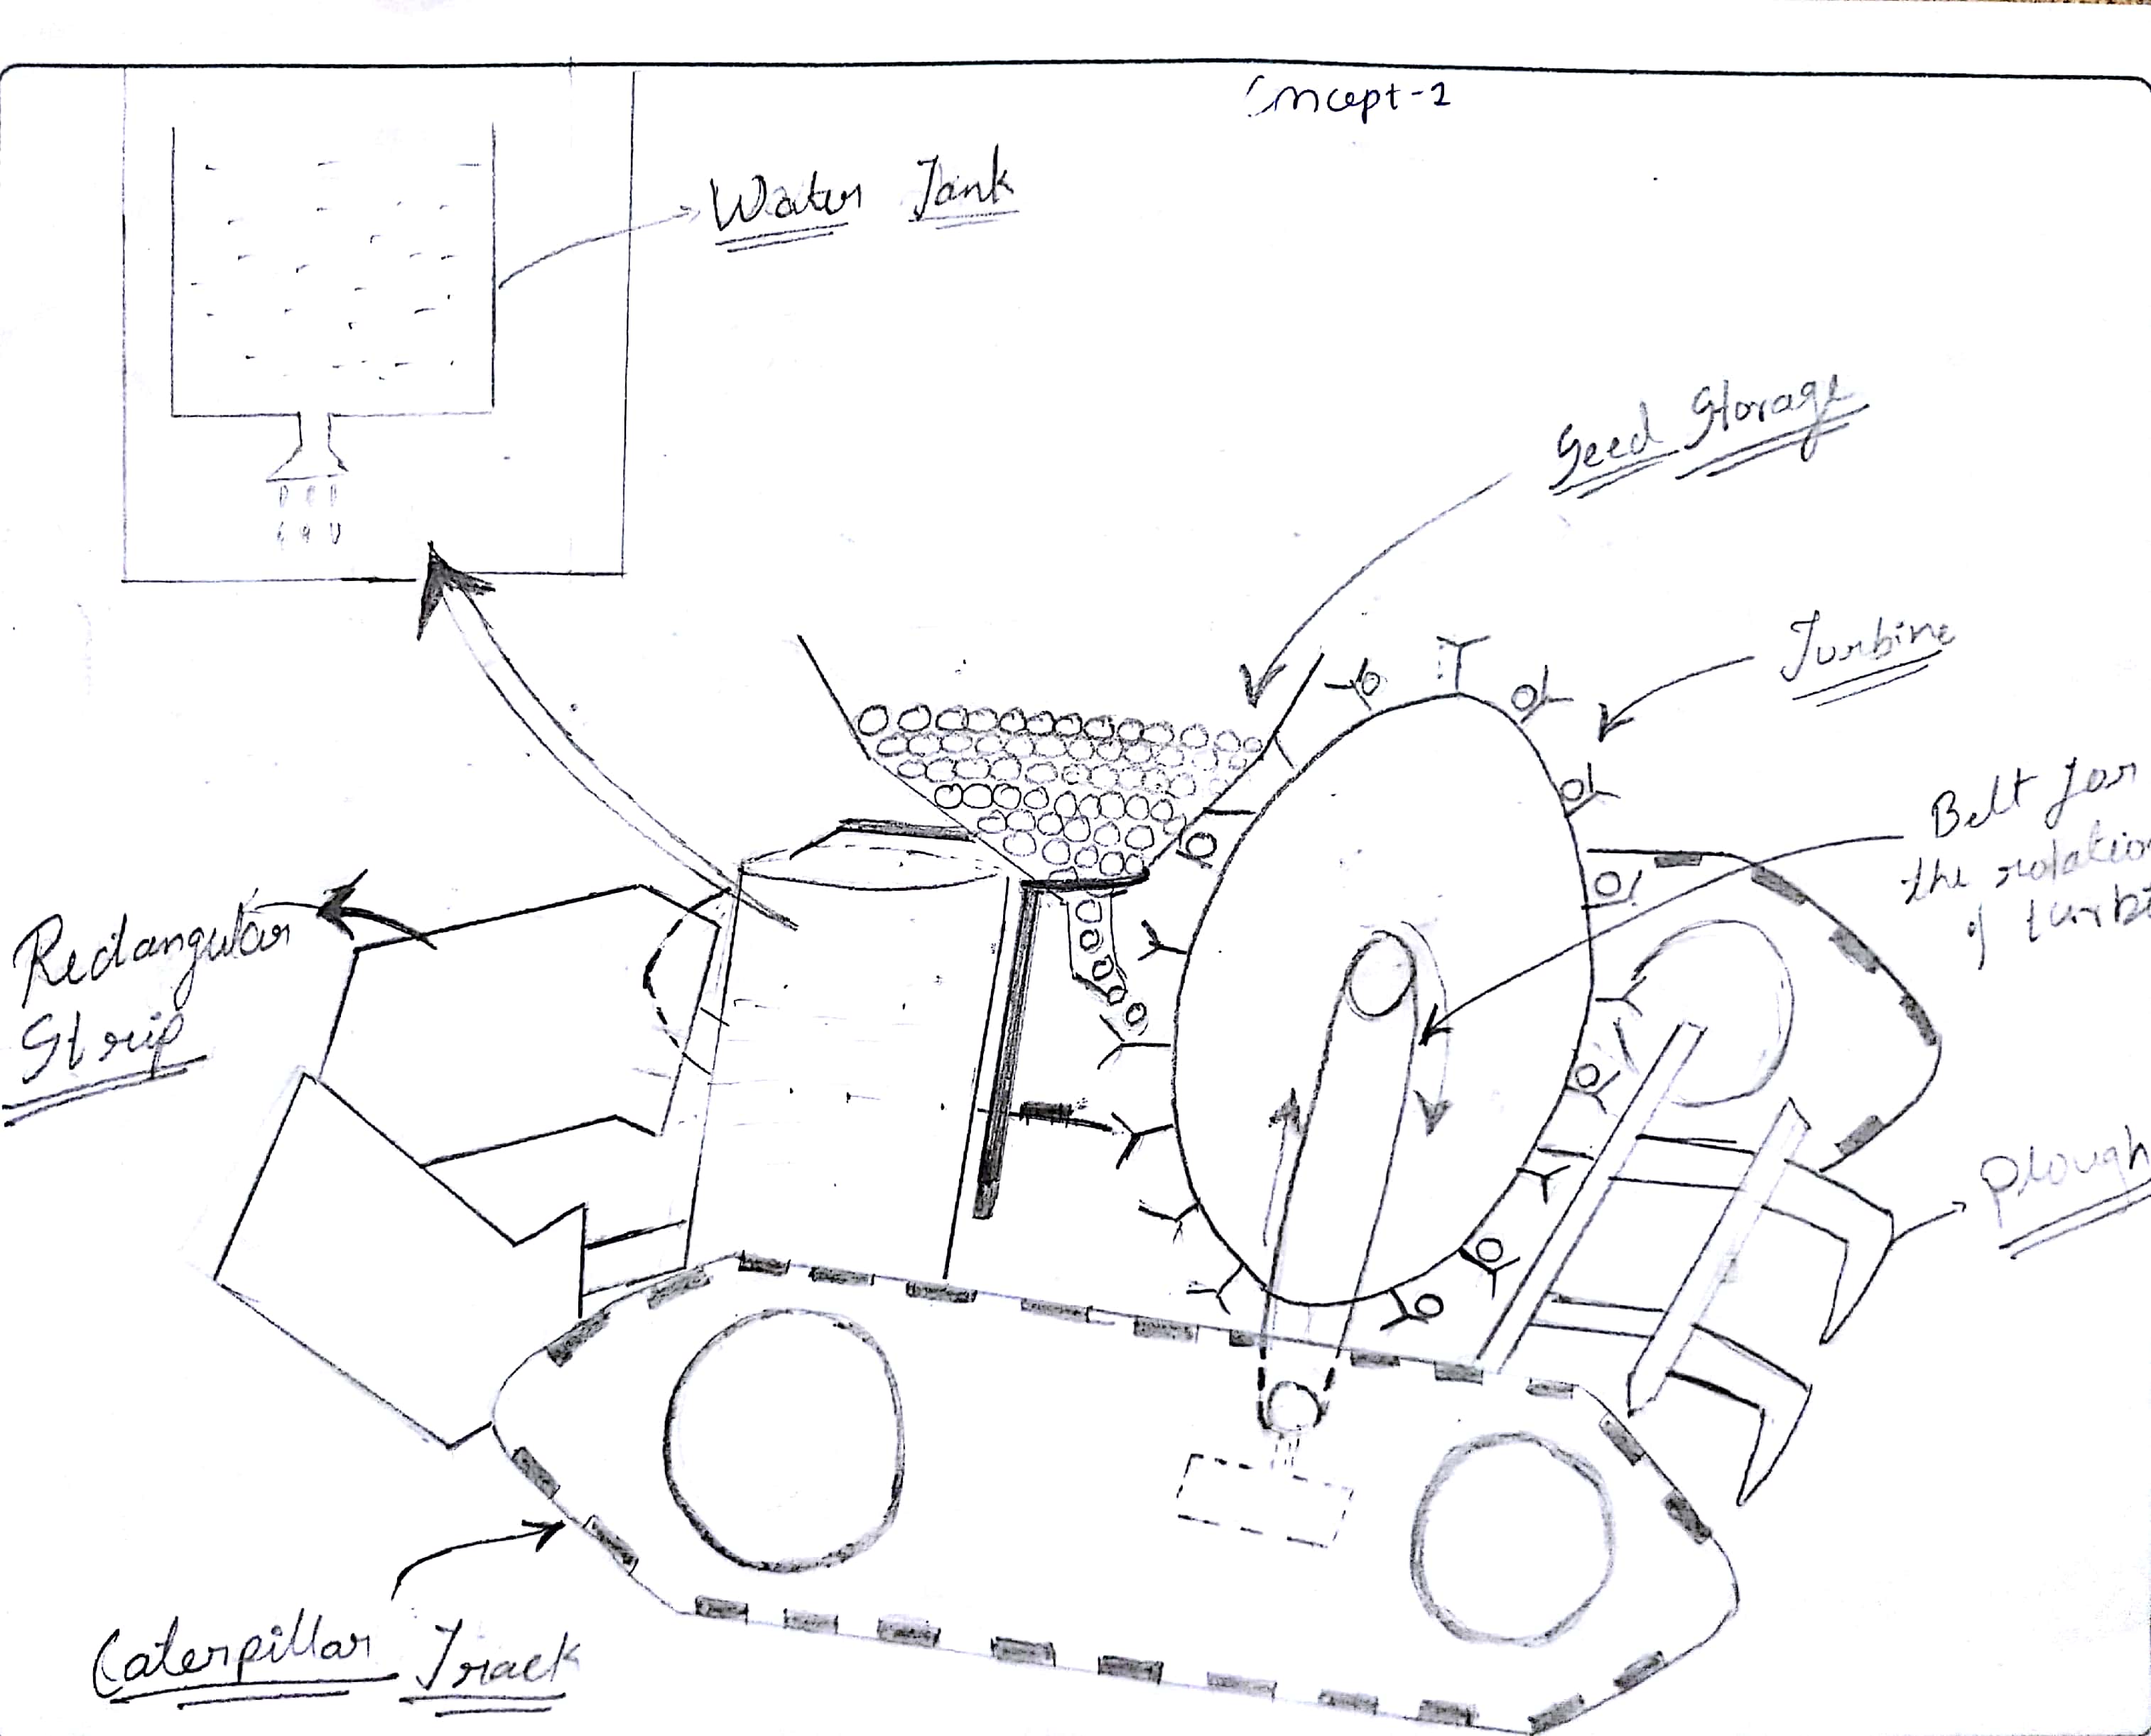 Concept-2
Water Tank
Seed Storage
Turbine
Belt for
the rotation
of turbi
Rectangular
Strip
Plough
Caterpillar Track